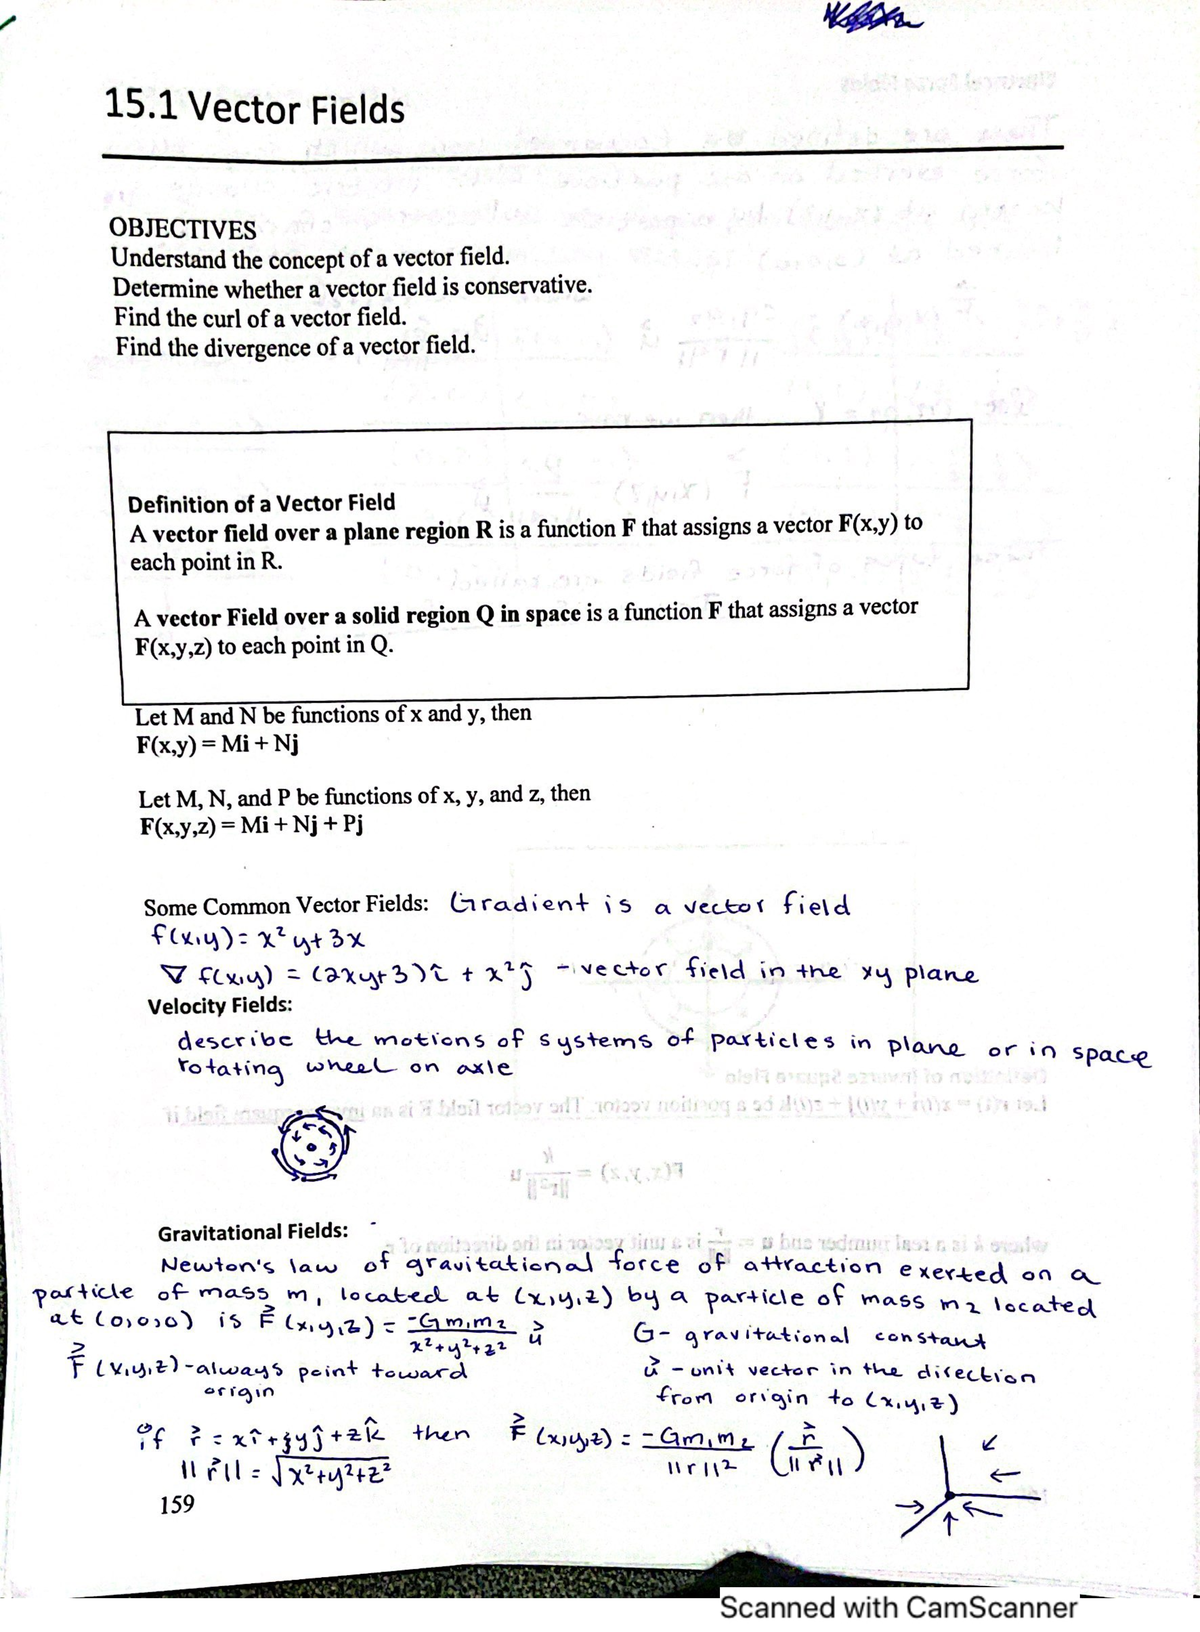 15.1 Vector Fields
OBJECTIVES
Understand the concept of a vector field.
Determine whether a vector field is conservative.
Find the curl of a vector field.
Find the divergence of a vector field.
Definition of a Vector Field
A vector field over a plane region R is a function F that assigns a vector F(x,y) to
each point in R.
A vector Field over a solid region Q in space is a function F that assigns a vector
F(x,y,z) to each point in Q.
Let M and N be functions of x and y, then
F(x,y) = Mi + Nj
Let M, N, and P be functions of x, y, and z, then
F(x,y,z) = Mi + Nj + Pj
Some Common Vector Fields: Gradient is a vector field
f(x,y) = x² y + 3x
∇ f(x,y) = (2xy+3)î + x²ĵ - vector field in the xy plane
Velocity Fields:
describe the motions of systems of particles in plane or in space
rotating wheel on axle
Gravitational Fields:
Newton's law of gravitational force of attraction exerted on a
particle of mass m₁ located at (x,y,z) by a particle of mass m₂ located
at (0,0,0) is F⃗ (x,y,z) = -G m₁m₂ / x²+y²+z² u⃗ G - gravitational constant
F⃗ (x,y,z) - always point toward u⃗ - unit vector in the direction
origin from origin to (x,y,z)
if r⃗ = xî + yĵ + zk̂ then F⃗ (x,y,z) = -Gm₁m₂ / ||r||² (r⃗ / ||r⃗||)
||r⃗|| = √x²+y²+z²
159
Scanned with CamScanner